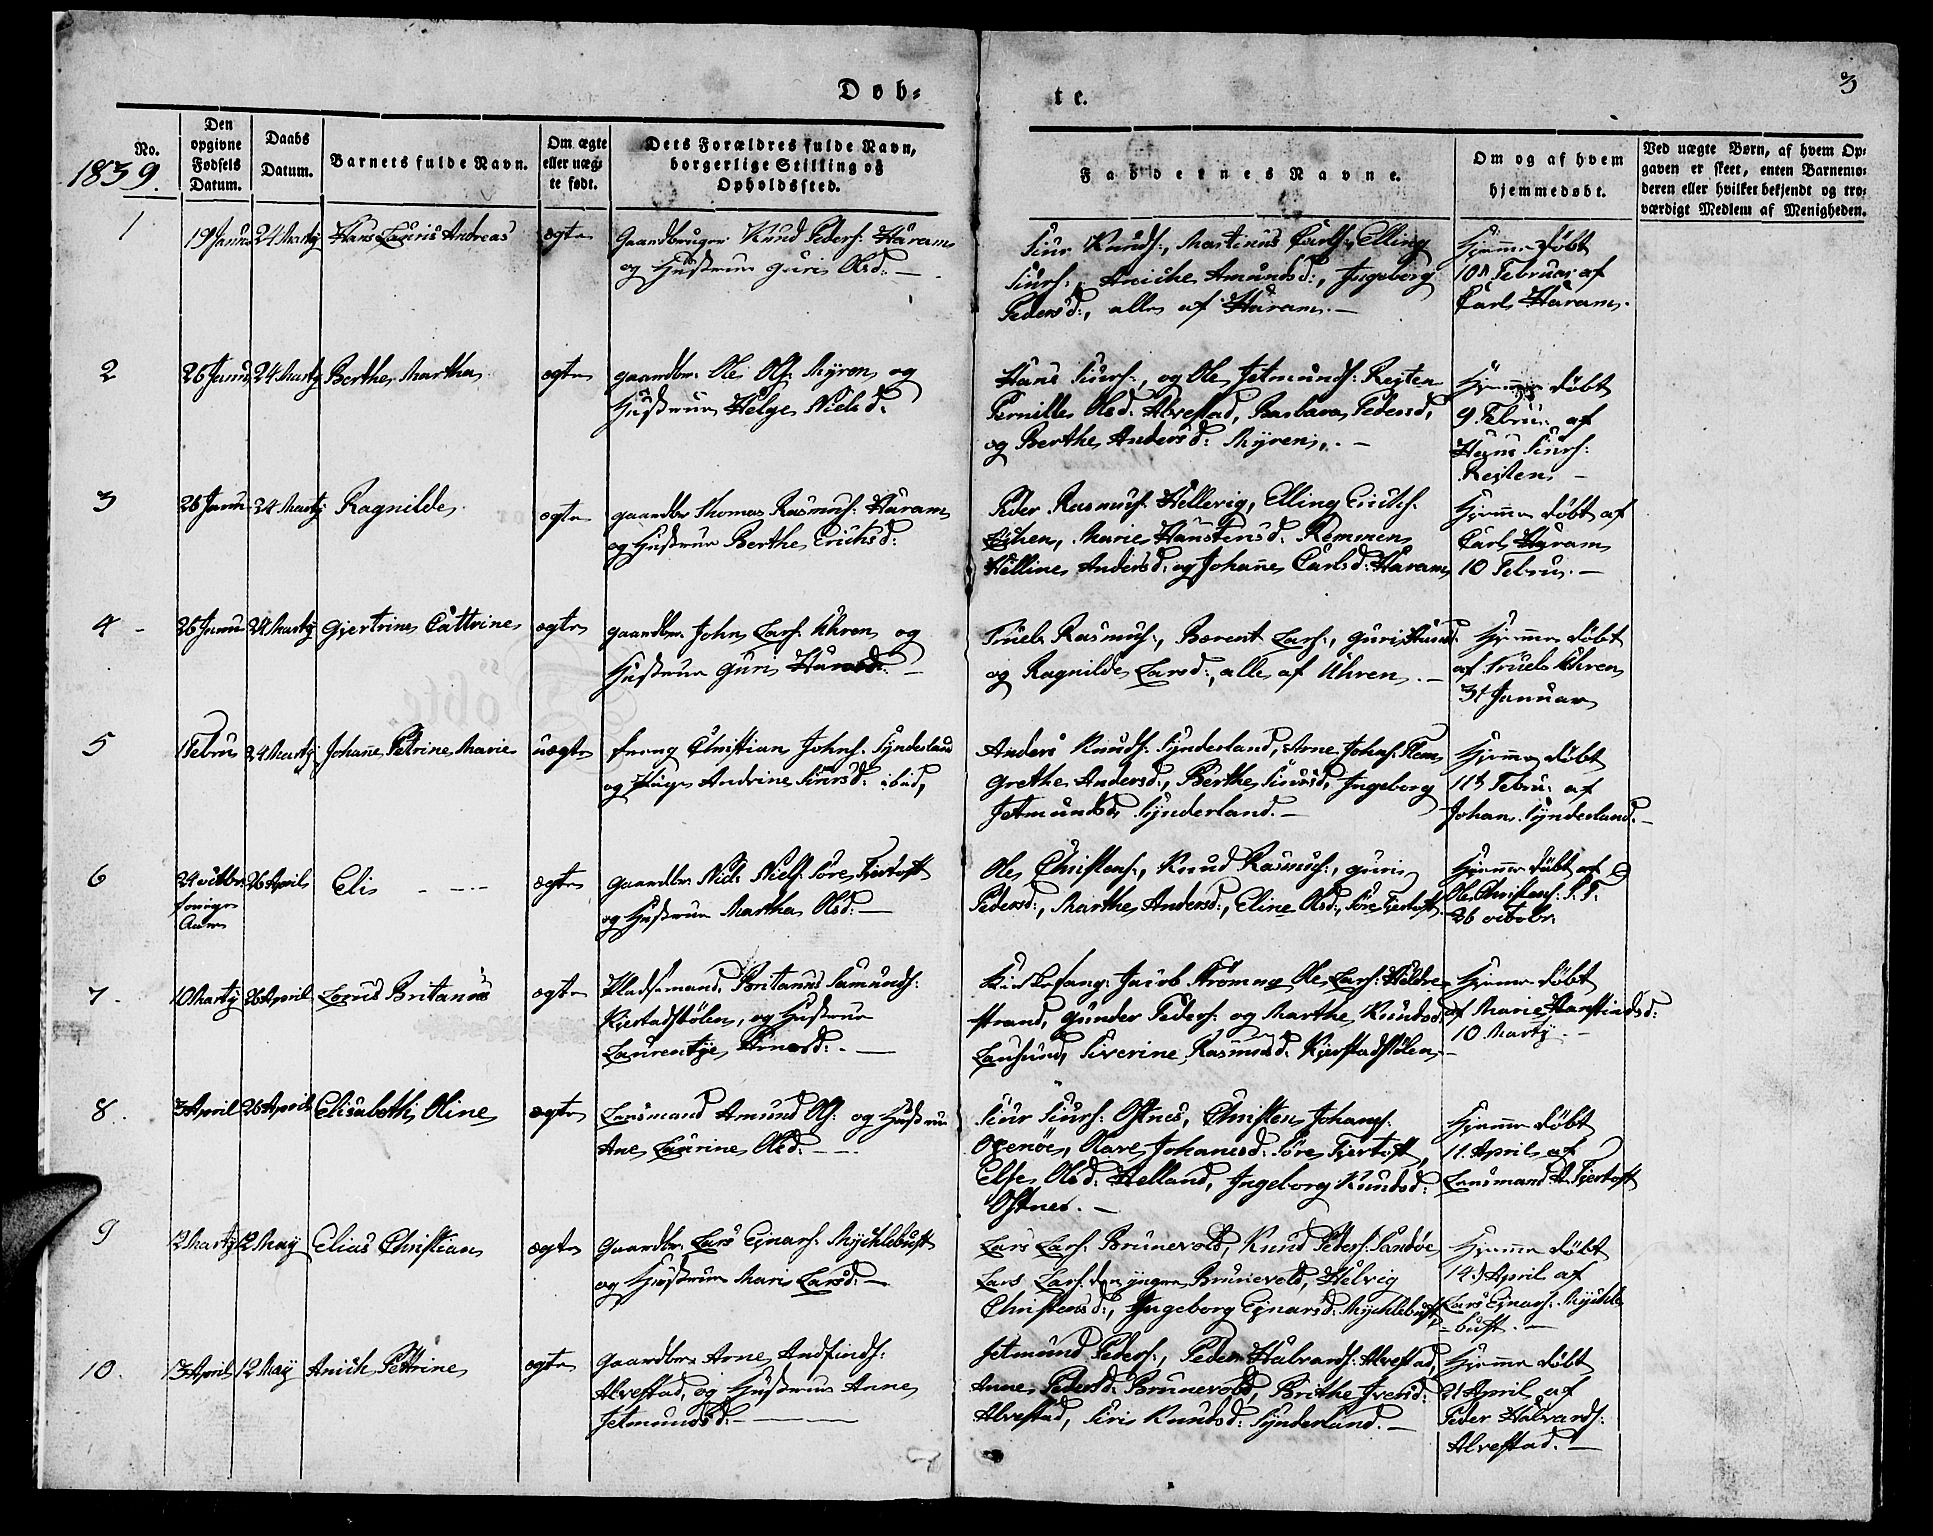 Døb-
te.
3
1839.
No.
Den opgivne Fødsels Datum.
Daabs Datum.
Barnets fulde Navn.
Om ægte eller uægte født.
Dets Forældres fulde Navn, borgerlige Stilling og Opholdssted.
Faddernes Navne.
Om og af hvem hjemmedøbt.
Ved uægte Børn, af hvem Opgaven er skeet, enten Barnemoderen eller hvilket bekjendt og troværdigt Medlem af Menigheden.
1
19 Janu 24 Martÿ Hans Lauris Andreas ægte Gaardbruger Knud Peders: Haram
og Hustrue Guri Olsd: —
Siur Knuds:, Martinus Carls:, Elling
Siurs:, Aniche Amundsd:, Ingeborg
Pedersd:, alle af Haram. —
Hjemme døbt
10d Februar af
Carl Haram.
2
26 Janu 24 Martÿ Berthe Martha ægte gaardbr. Ole Ols: Myren og
Hustrue Helge Nielsd:
Hans Siurs:, og Ole Jetmunds: Rejten
Pernille Olsd: Alvestad, Barbara Pedersd,
og Berthe Andersd: Myren. —
Hjemme døbt
9 Febru: af
Hans Siurs:
Rejten —
3
26 Janu 24 Martÿ Ragnilde ægte gaardbr Thomas Rasmus: Haram
og Hustrue Berthe Erichsd:
Peder Rasmus: Hellevig, Elling Erichs:
Marie Hanstensd: Remmen
Helline Andersd: og Johanne Carlsd: Haram
Hjemme døbt af
Carl Haram
10 Febru. —
4
26 Janu 24 Martÿ Gjertrine Cattrine ægte gaardbr. John Lars: Uhren og
Hustrue Guri —
Truels Rasmus:, Berent Lars:, Guri
og Ragnilde Larsd:, alle af Uhren. —
Hjemme døbt
af Truels Uhren
31 Januar
5
1 Febru 24 Martÿ Johane Petrine Marie uægte Christian Johns: Synderland
og Pige Andrine Siursd: ibid,
Anders Knuds: Synderland, Arne Johns: Flem
Grethe Andersd:, Berthe Siursd, Ingeborg
Jetmundsd, Synderland. —
Hjemme døbt
11d Febru: af
Johan Synderland. —
6
24 octbr. 26 April Elis ægte Gaardbr. Niels Niels: Søre Fjertoft
forrige
Aar
og Hustrue Martha Olsd: —
Ole Christens:, Knud Rasmus:, Guri
Pedersd:, Marthe Andersd:, Eline Olsd:, Søre Fjertoft
Hjemme døbt af
Ole Christens: S. F.
26 octobr:
7
10 Martÿ 26 April Lorns Britanus ægte Pladsemand Britanus Samunds:
Kjerstadstølen, og Hustrue
Laurentje —
Jacob Strømme, Ole Lars: Hildre-
strand, Gunder Peders: og Marthe Knudsd:
Lausund, Siverine Rasmusd: Kjerstadstølen —
Hjemme døbt
af Marie Hanstindsd:
10 Martÿ —
8
3 April 26 April Elisabeth Oline ægte Lensmand Amund Ols: og Hustrue
Ane Laurine Olsd: —
Siur Siurs: Ostnes, Christen Johans:
Oxenöe, Olave Johanesd: Søre Fjertoft,
Else Olsd: Helland, Ingeborg Knudsd:
Ostnes. —
Hjemme døbt
11 April af
Lensmand A. Fjertoft
9
12 Martÿ 12 Maÿ Elias Christian ægte Gaardbr. Lars Ejnars: Mychlebust
og Hustrue Mari Larsd: —
Lars Lars: Brunevold, Knud Peders: Sandøe
Lars Lars: den yngre Brunevold, Helvig
Christensd:, Ingeborg Ejnarsd: Mychlebust,
Hjemme døbt
14d April af
Lars Ejnars: Mychle-
bust. —
10.
13 April 12 Maÿ Anick Pettrine ægte Gaardbr. Arne Andfinds:
Alvestad, og Hustrue Anne
Jetmundsd: —
Jetmund Peders:, Peder Halvards: Alvestad,
Anne Pedersd: Brunevold, Brithe Iversd:
Alvestad, Siri Knudsd: Synderland. —
Hjemme døbt
21 April af
Peder Halvards:
Alvestad. —